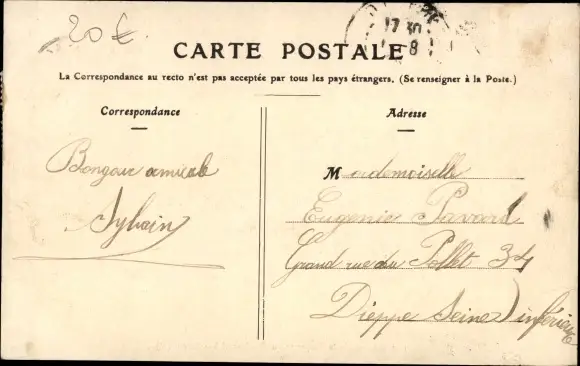 20 €
17 30
8
CARTE POSTALE
La Correspondance au recto n'est pas acceptée par tous les pays étrangers. (Se renseigner à la Poste.)
Correspondance
Bongour amicale
Sylvain
Adresse
Mademoiselle
Eugenie Pavard
Grand rue du Pollet 34
Dieppe Seine inférieure